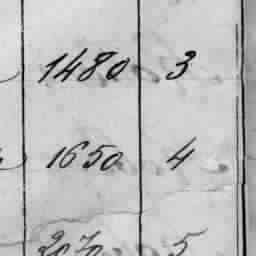 1480 3
1650 4
2070 5